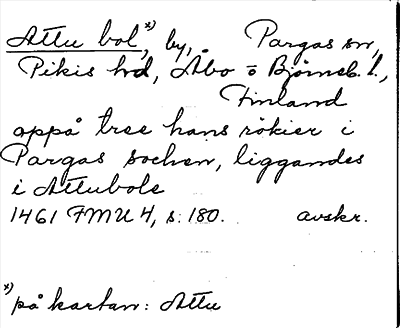 Attu bol *), by, Pargas sn,
Pikis hd, Åbo o Björneb. l.,
Finland
oppå tree hans rökier i
Pargas sochen, liggandes
i Attubole
1461 FMU 4, s. 180. avskr.
*) på kartan: Attu